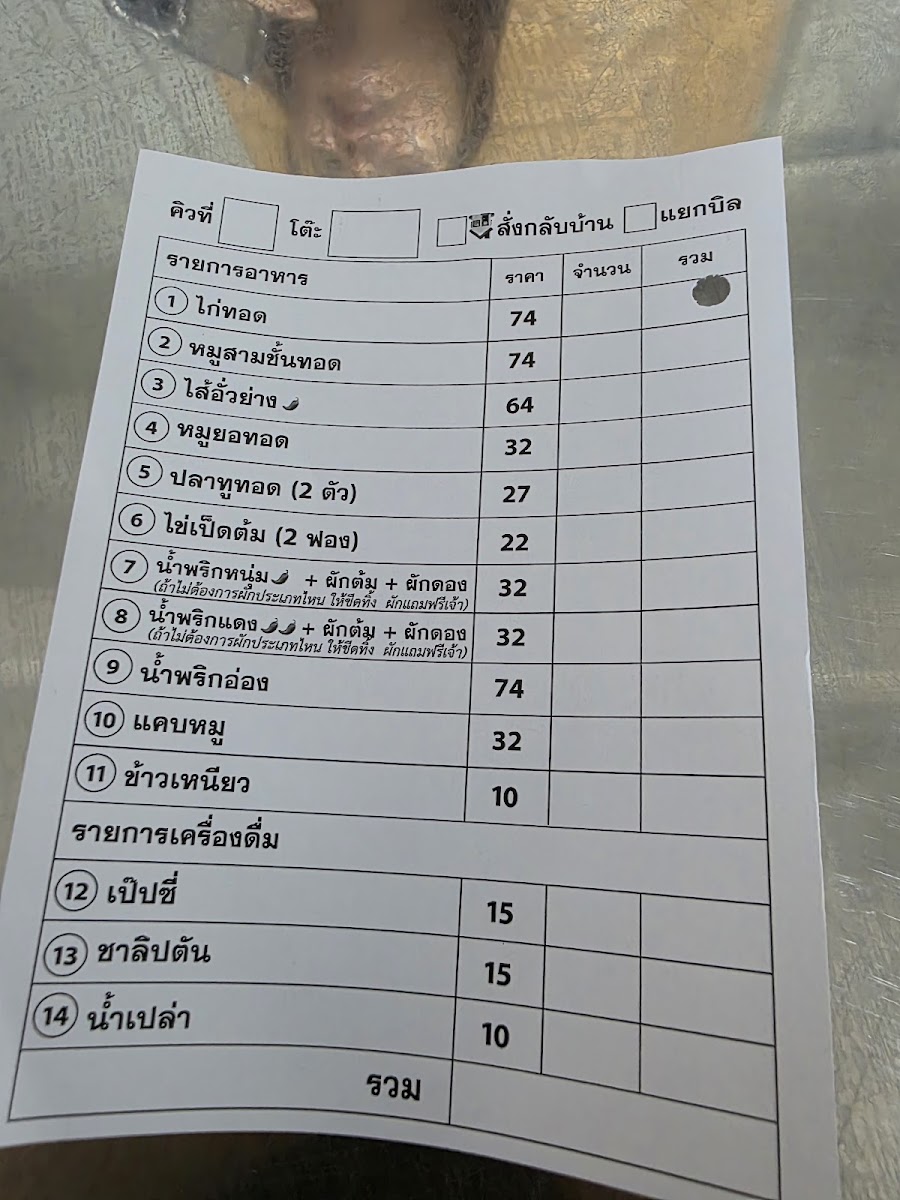 คิวที่ โต๊ะ สั่งกลับบ้าน แยกบิล
รายการอาหาร ราคา จำนวน รวม
1 ไก่ทอด 74
2 หมูสามชั้นทอด 74
3 ไส้อั่วย่าง 64
4 หมูยอทอด 32
5 ปลาทูทอด (2 ตัว) 27
6 ไข่เป็ดต้ม (2 ฟอง) 22
7 น้ำพริกหนุ่ม + ผักต้ม + ผักดอง 32
(ถ้าไม่ต้องการผักประเภทไหน ให้ขีดทิ้ง ผักแถมฟรีเจ้า)
8 น้ำพริกแดง + ผักต้ม + ผักดอง 32
(ถ้าไม่ต้องการผักประเภทไหน ให้ขีดทิ้ง ผักแถมฟรีเจ้า)
9 น้ำพริกอ่อง 74
10 แคบหมู 32
11 ข้าวเหนียว 10
รายการเครื่องดื่ม
12 เป๊ปซี่ 15
13 ชาลิปตัน 15
14 น้ำเปล่า 10
รวม